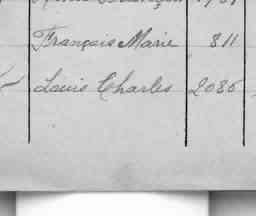 François Marie 811
Louis Charles 2086